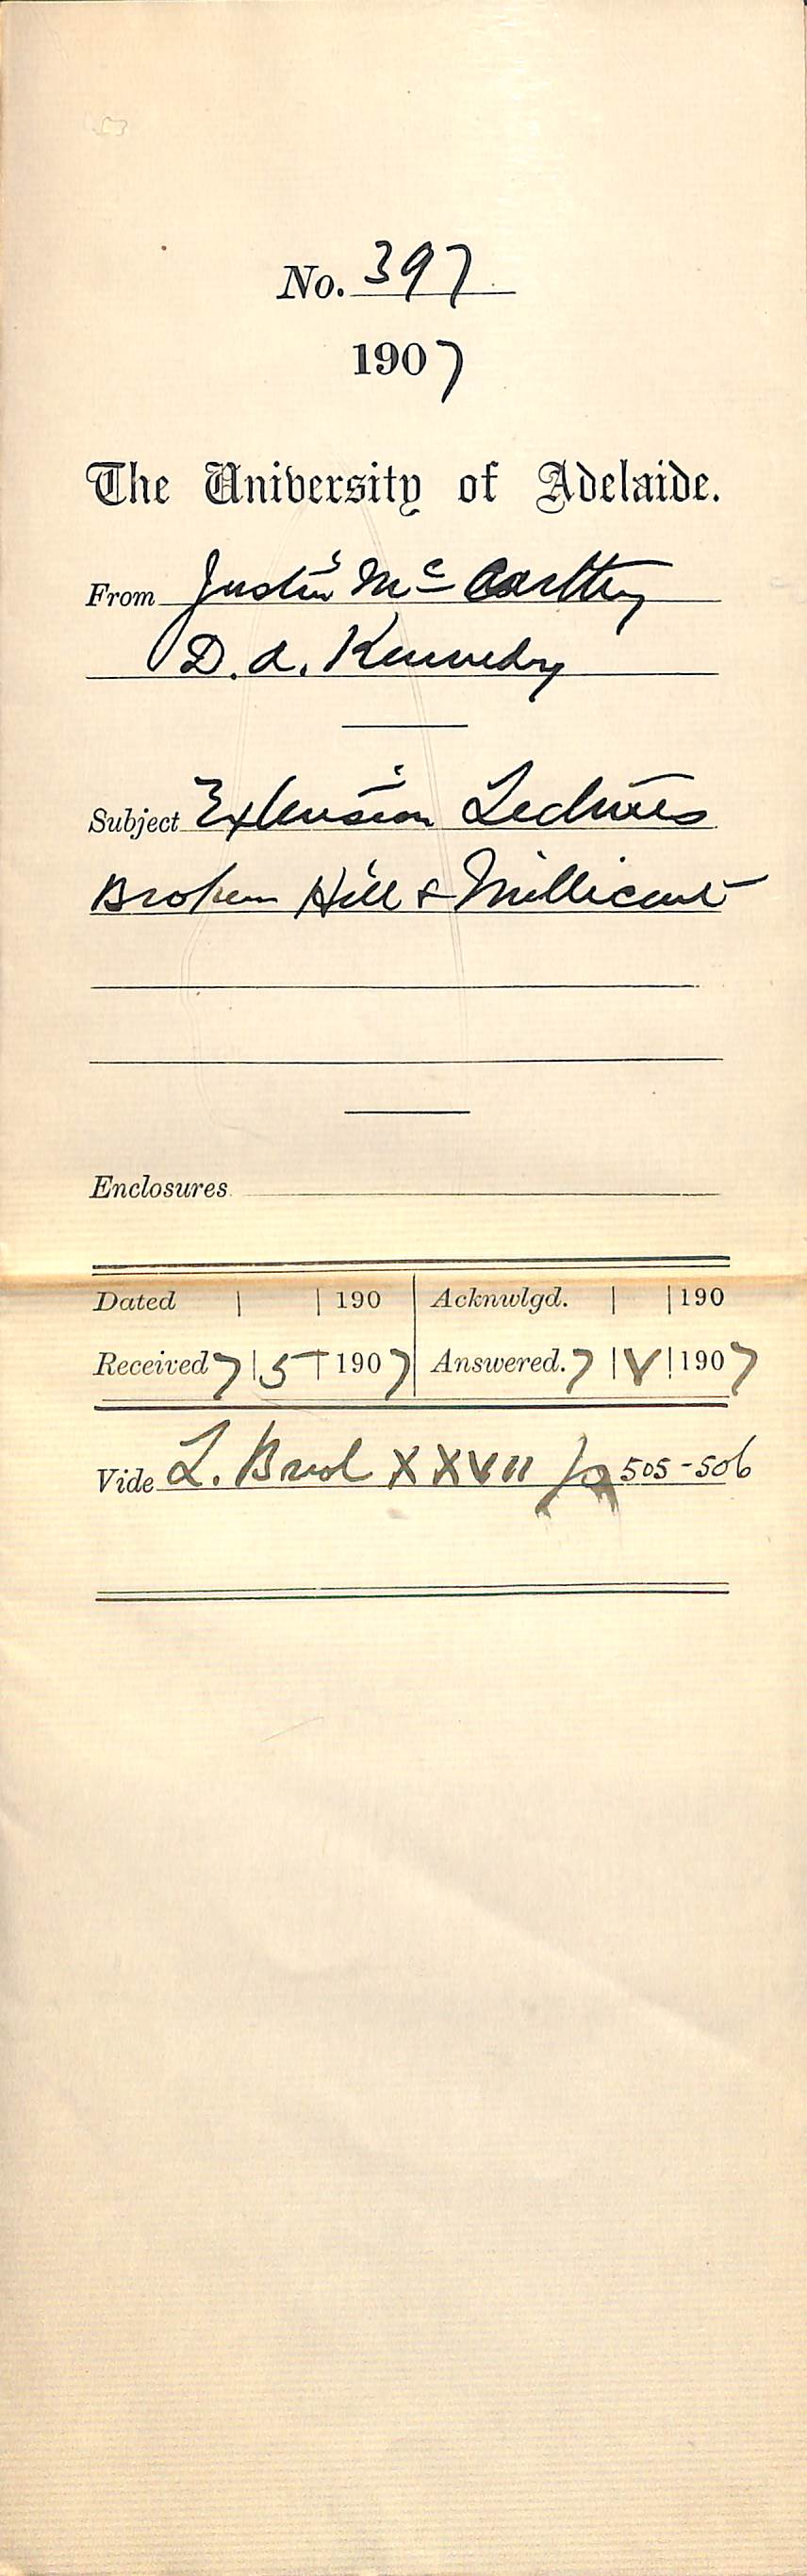 No. 397
1907
The University of Adelaide.
From Justin Mc Carthy
D. A. Kennedy
Subject Extension Lectures
Broken Hill & Millicent
Enclosures
Dated | | 190 Acknwlgd. | | 190
Received 7 | 5 | 1907 Answered. 7 | V | 1907
Vide L. Book XXVII fo 505-506